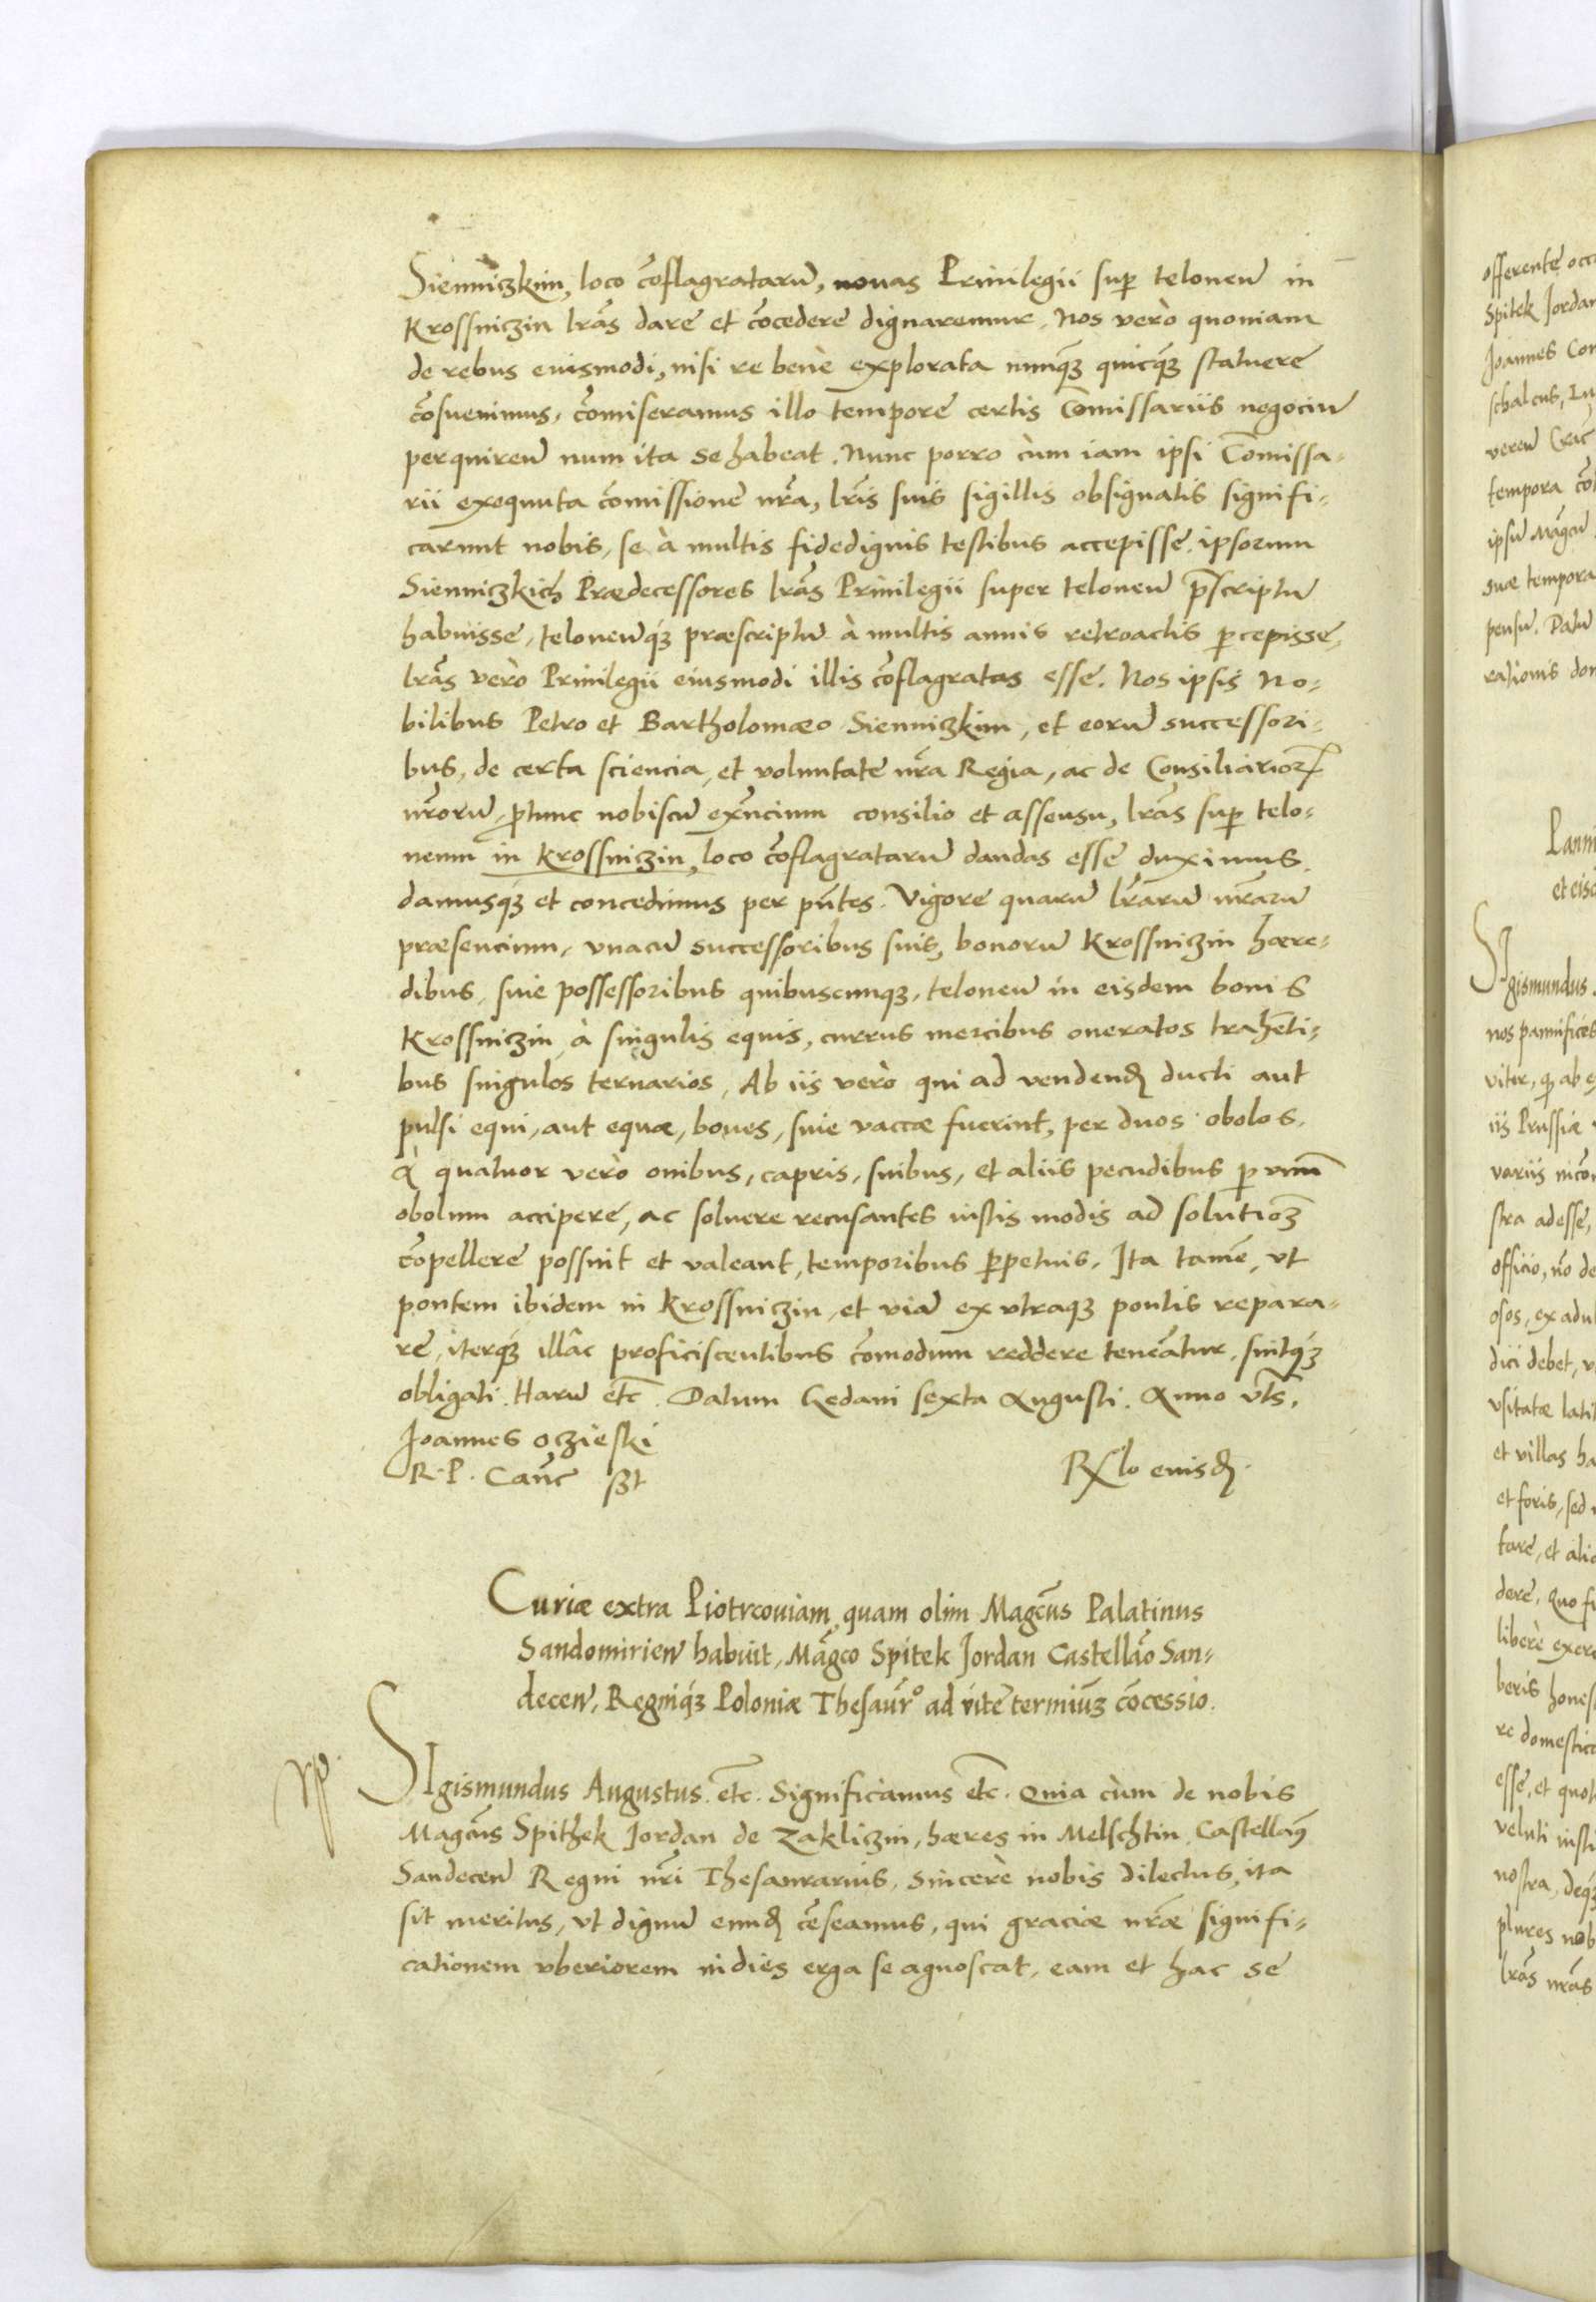 Sienniczkim, loco co̅flagrataru̅, nouas Priuilegii sup̱ teloneu̅ in
Krossniczin lr̅as dare et co̅cedere dignaremur. Nos verò quoniam
de rebus euismodi, nisi re bene explorata nunq̃ꝫ quicq̃ꝫ statuere
co̅sueuimus, co̅miseramus illo tempore certis Co̅missariis negociu̅
perquireu̅ num ita se habeat. Nunc porro cùm iam ipsi Comissa-
rii exequuta co̅missione nr̅a, lr̅is suis sigillis obsignatis signifi-
carunt nobis, se à multis fidedignis testibus accepisse, ipsorum
Sienniczkich Prædecessores lr̅as Priuilegii super teloneu̅ p̅scriptu̅
habuisse, teloneu̅qꝫ præscriptu̅ à multis annis retroactis p̱cepisse,
lr̅as verò Priuilegii eiusmodi illis co̅flagratas esse. Nos ipsis No-
bilibus Petro et Bartholomæo Sienniczkim, et eoru̅ successori-
bus, de certa sciencia, et voluntate nr̅a Regia, ac de Consiliarioꝝ
nr̅oru̅ p̱tunc nobiscu̅ exn̅cium consilio et assensu, lr̅as sup̱ telo-
neum in Krossniczin, loco co̅flagrataru̅ dandas esse duximus,
damusqꝫ et concedimus per pn̅tes. Vigore quaru̅ lr̅aru̅ nr̅aru̅
præsencium, vnacu̅ successoribus suis, bonoru̅ Krossniczin hære-
dibus, siue possessoribus quibuscunqꝫ, teloneu̅ in eisdem bonis
Krossniczin à singulis equis, currus mercibus oneratos trahe̅ti-
bus singulos ternarios, Ab iis verò qui ad vendendꝭ ducti aut
pulsi equi, aut equæ, boues, siue vaccæ fuerint, per duos obolos.
A quatuor verò ouibus, capris, suibus, et aliis pecudibus p̱ vnu̅
obolum accipere, ac soluere recusantes iustis modis ad solutioꝫ
co̅pellere possint et valeant, temporibus p̱petuis. Ita tame̅, vt
pontem ibidem in Krossniczin, et via̅ ex vtraqꝫ pontis repara-
re, iterqꝫ illâc proficiscentibus co̅modum reddere tenea̅tur, sintqꝫ
obligati. Haru̅ etc̅. Datum Gedani sexta Augusti. Anno vts̅.
Joannes Oczieski
R. P. Canc̅ sst
Rlo euisdꝭ.
Curiæ extra Piotrcouiam, quam olim Magcu̅s Palatinus
Sandomirien̅ habuit, Ma̅gco Spitek Jordan Castella̅o San-
decen̅, Regniqꝫ Poloniæ Thesaur̅º ad vite̅ terminu̅ꝫ co̅cessio.
Sigismundus Augustus. etc̅. Significamus etc̅. Quia cùm de nobis
Magcu̅s Spithek Jordan de Zakliczin, hæres in Melschtin, Castella̅ꝰ
Sandecen̅ Regni nr̅i Thesaurarius, sincerè nobis dilectus, ita
sit meritus, vt dignu̅ eundꝭ ce̅seamus, qui graciæ nr̅æ signifi-
cationem vberiorem indies erga se agnoscat, eam et hac se
offerente
Spitek Jordan
Joannes
tempora
suæ tempora
Sigismundus
nos pannifices
iis Prussiæ
stra adesse,
dici debet,
et villas
et foris, sed
liberè
re domestica
nostra,
plures
lr̅as nr̅as